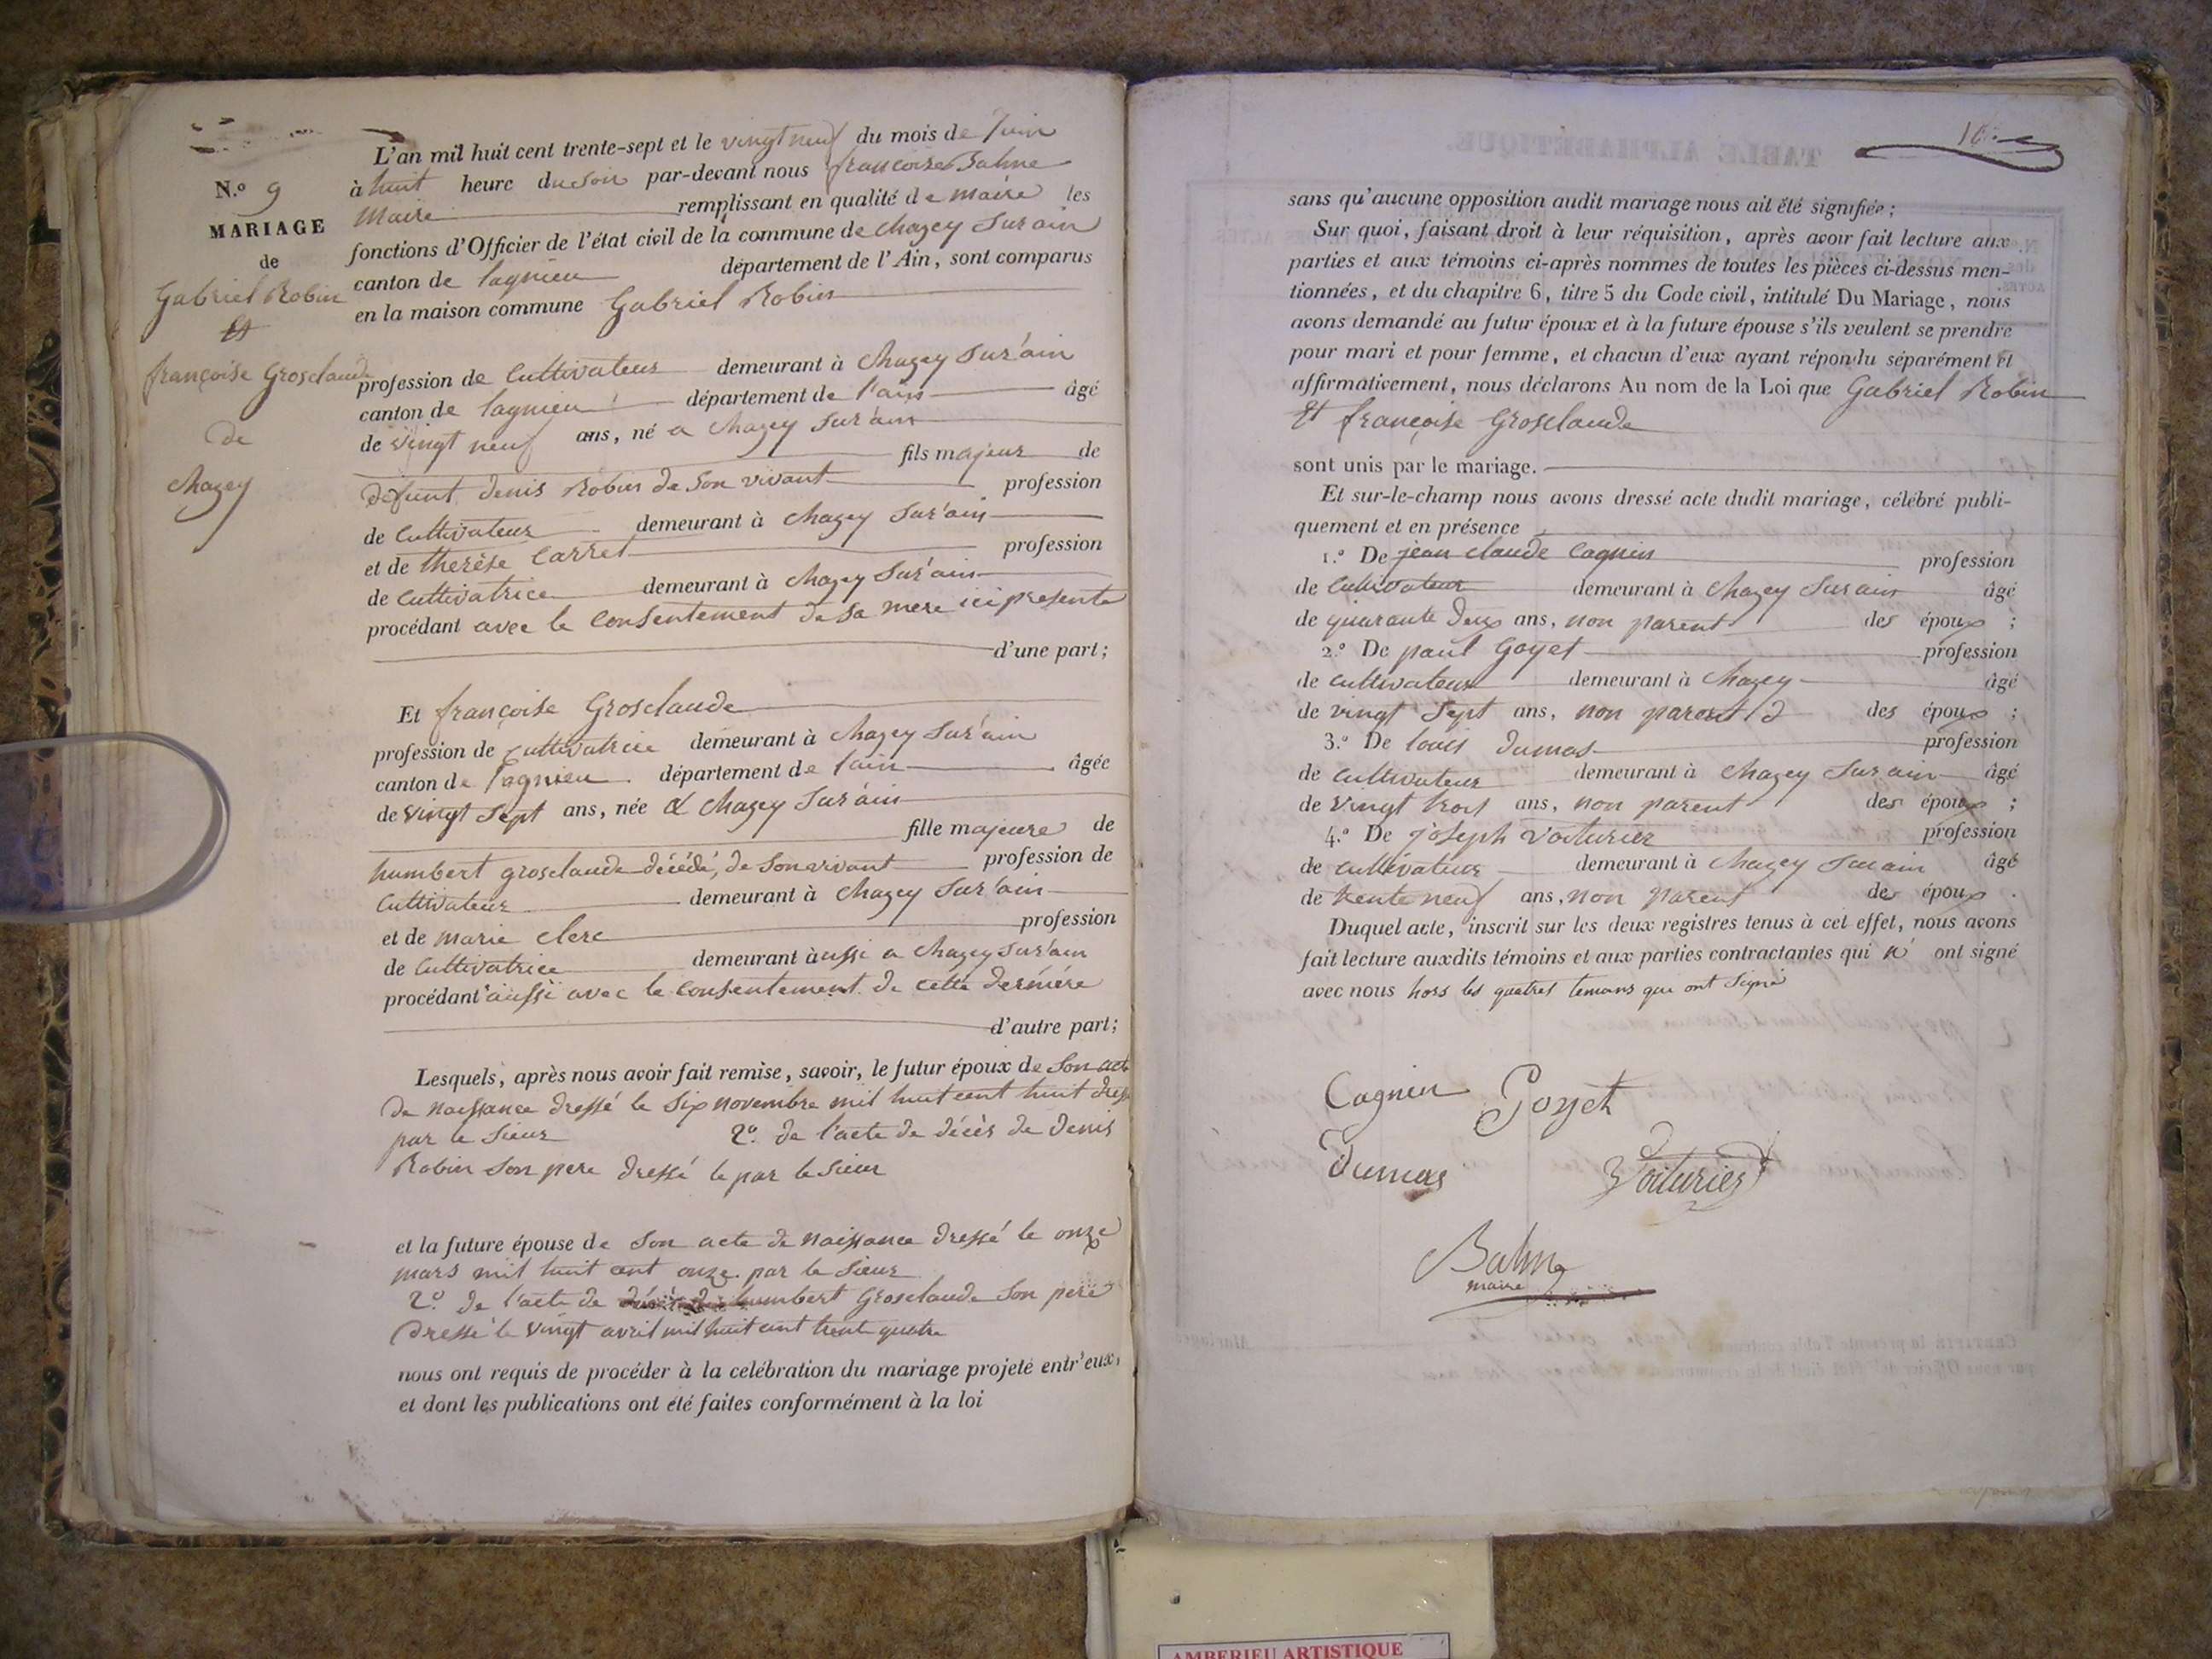 N.º 9
MARIAGE
de
Gabriel Robin
Et
françoise Grosclaude
de
chazey
L'an mil huit cent trente-sept et le vingt neuf du mois de Juin
à huit heure du soir par-devant nous françoise Balme
Maire remplissant en qualité de maire les
fonctions d'Officier de l'état civil de la commune de chazey Sur ain
canton de lagnieu département de l'Ain, sont comparus
en la maison commune Gabriel Robin
profession de Cultivateur demeurant à Chazey Sur ain
canton de lagnieu département de l'ain âgé
de vingt neuf ans, né a Chazey Sur ain
fils majeur de
défunt denis Robin de Son vivant profession
de Cultivateur demeurant à chazey Sur ain
et de therèse Carret profession
de Cultivatrice demeurant à chazey Sur ain
procédant avec le Consentement de sa mere ici presente
d'une part;
Et françoise Grosclaude
profession de Cultivatrice demeurant à chazey Sur ain
canton de lagnieu département de l'ain âgée
de vingt Sept ans, née a chazey Sur ain
fille majeure de
humbert grosclaude décédé, de Son vivant profession de
Cultivateur demeurant à chazey Sur ain
et de marie clerc profession
de Cultivatrice demeurant à aussi a chazey Sur ain
procédant aussi avec le Consentement de cette dernière
d'autre part;
Lesquels, après nous avoir fait remise, savoir, le futur époux de Son acte
de naissance dressé le Six novembre mil huit cent huit
par le Sieur 2º de l'acte de décès de Denis
Robin Son pere dressé le par le Sieur
et la future épouse de Son acte de naissance dressé le onze
mars mil huit cent onze par le Sieur
2º de l'acte de humbert Grosclaude Son pere
dressé le vingt avril mil huit cent trente quatre
nous ont requis de procéder à la celébration du mariage projeté entr'eux,
et dont les publications ont été faites conformément à la loi
sans qu'aucune opposition audit mariage nous ait été signifiée;
Sur quoi, faisant droit à leur réquisition, après avoir fait lecture aux
parties et aux témoins ci-après nommes de toutes les pièces ci-dessus men-
tionnées, et du chapitre 6, titre 5 du Code civil, intitulé Du Mariage, nous
avons demandé au futur époux et à la future épouse s'ils veulent se prendre
pour mari et pour femme, et chacun d'eux ayant répondu séparément et
affirmativement, nous déclarons Au nom de la Loi que Gabriel Robin
Et françoise Grosclaude
sont unis par le mariage.
Et sur-le-champ nous avons dressé acte dudit mariage, célébré publi-
quement et en présence
1.º De jean claude Cagnin profession
de Cultivateur demeurant à Chazey Sur ain âgé
de quarante deux ans, non parent des époux ;
2.º De paul Goyet profession
de cultivateur demeurant à Chazey âgé
de vingt Sept ans, non parent des époux ;
3.º De louis dumas profession
de cultivateur demeurant à Chazey Sur ain âgé
de vingt trois ans, non parent des époux ;
4.º De joseph Voiturier profession
de cultivateur demeurant à Chazey Sur ain âgé
de trente neuf ans, non parent des époux .
Duquel acte, inscrit sur les deux registres tenus à cet effet, nous avons
fait lecture auxdits témoins et aux parties contractantes qui n' ont signé
avec nous hors les quatres temoins qui ont Signé
Cagnin Goyet
Dumas Voiturier
Balme
maire
AMBERIEU ARTISTIQUE